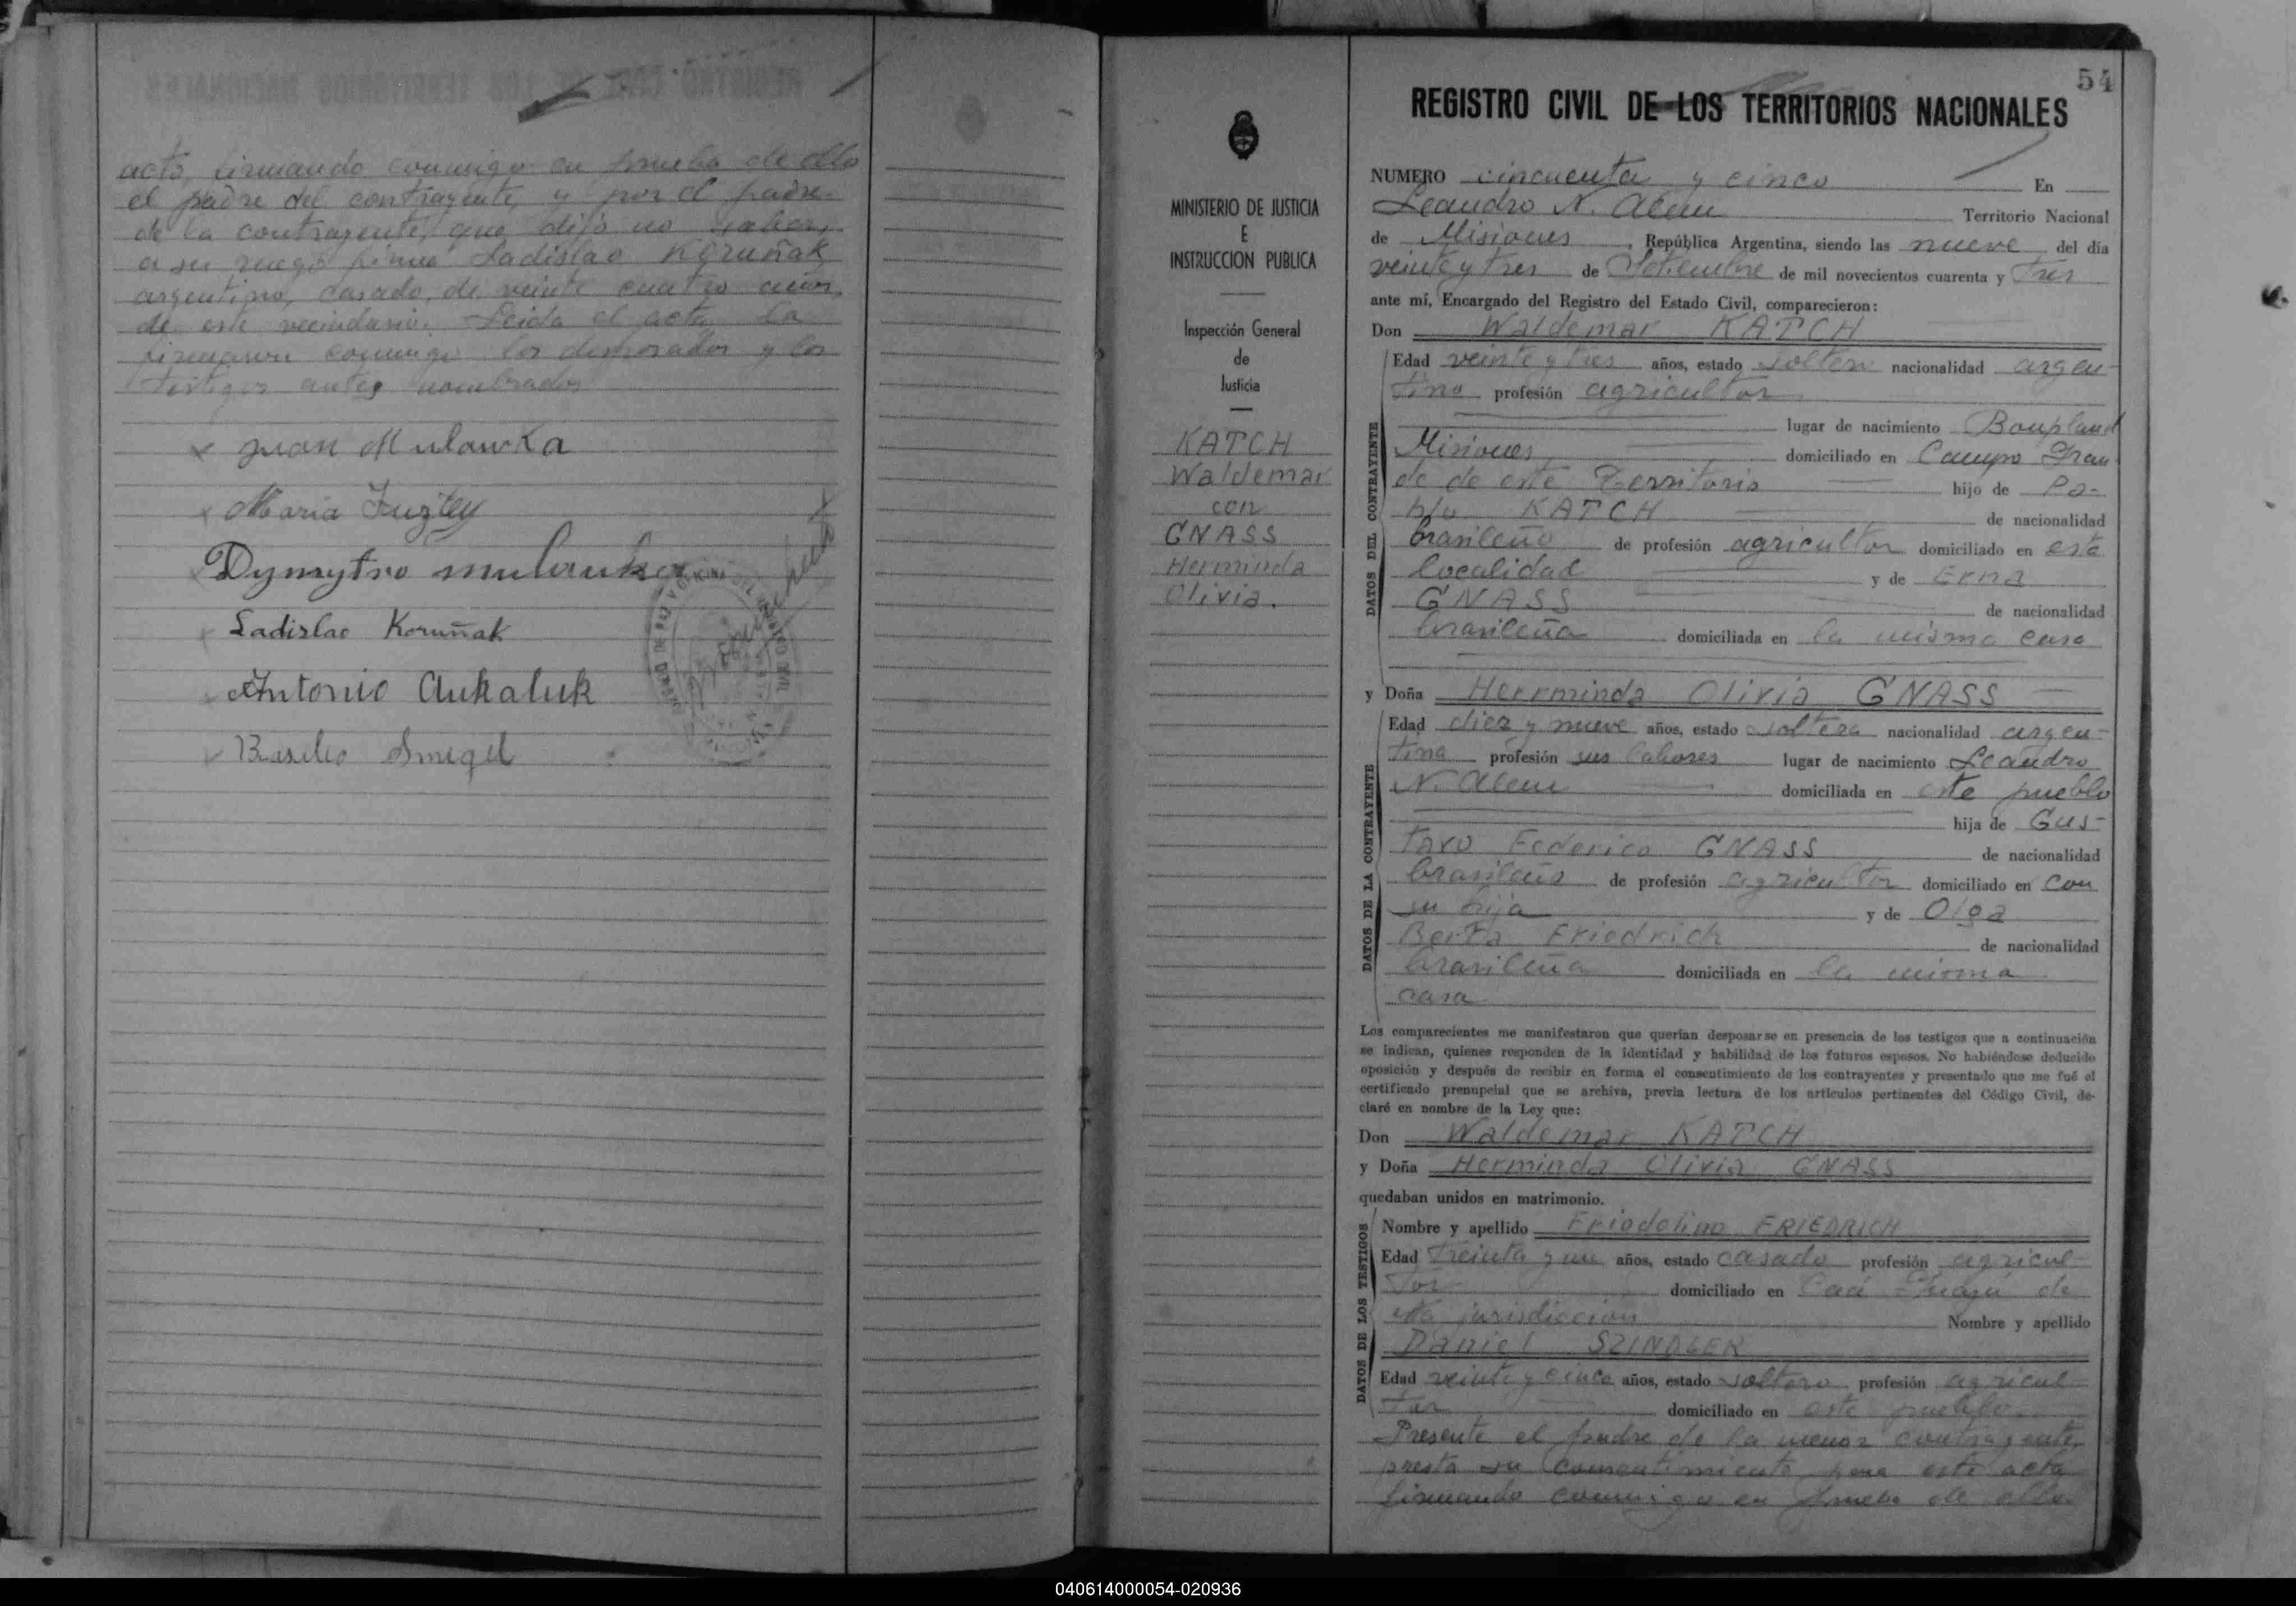 acto, firmando conmigo en prueba de ello
el padre del contrayente, y por el padre
de la contrayente, que dijo no saber,
a su ruego firma Ladislao KORUÑAK
argentino, casado, de veinte cuatro años
de este vecindario. Leida el acta la
firmaron conmigo los desposados y los
testigos antes nombrados
x Juan Mulawka
x Maria
Dymytro
Ladislao Koruñak
Antonio Aukaluk
Basilio Smegel
MINISTERIO DE JUSTICIA
E
INSTRUCCION PUBLICA
Inspección General
de
Justicia
KATCH
Waldemar
con
GNASS
Herminda
Olivia.
54
REGISTRO CIVIL DE LOS TERRITORIOS NACIONALES
NUMERO cincuenta y cinco En
Leandro N. Alem Territorio Nacional
de Misiones, República Argentina, siendo las nueve del día
veinte y tres de Setiembre de mil novecientos cuarenta y tres
ante mí, Encargado del Registro del Estado Civil, comparecieron:
Don Waldemar KATCH
DATOS DEL CONTRAYENTE
Edad veinte y tres años, estado soltero nacionalidad argen-
tina profesión agricultor
lugar de nacimiento Bonpland
Misiones domiciliado en Campo Gran-
de de este Territorio hijo de Pa-
blo KATCH de nacionalidad
brasileño de profesión agricultor domiciliado en esta
localidad y de Erna
GNASS de nacionalidad
brasileña domiciliada en la misma casa
y Doña Herrminda Olivia GNASS
DATOS DE LA CONTRAYENTE
Edad diez y nueve años, estado soltera nacionalidad argen-
tina profesión sus labores lugar de nacimiento Leandro
N. Alem domiciliada en este pueblo
hija de Gus-
tavo Federico GNASS de nacionalidad
brasileño de profesión agricultor domiciliado en con
su hija y de Olga
Berta Friedrich de nacionalidad
brasileña domiciliada en la misma
casa
Los comparecientes me manifestaron que querían desposarse en presencia de los testigos que a continuación
se indican, quienes responden de la identidad y habilidad de los futuros esposos. No habiéndose deducido
oposición y después de recibir en forma el consentimiento de los contrayentes y presentado que me fué el
certificado prenupcial que se archiva, previa lectura de los artículos pertinentes del Código Civil, de-
claré en nombre de la Ley que:
Don Waldemar KATCH
y Doña Herminda Olivia GNASS
quedaban unidos en matrimonio.
DATOS DE LOS TESTIGOS
Nombre y apellido Friodolino FRIEDRICH
Edad treinta y un años, estado casado profesión agricul-
tor domiciliado en Caá de
esta jurisdicción Nombre y apellido
Daniel SZINDLER
Edad veinte y cinco años, estado soltero profesión agricul-
tor domiciliado en este pueblo
Presente el padre de la menor contrayente,
presta su consentimiento para este acto
firmando conmigo en prueba de ello.
040614000054-020936